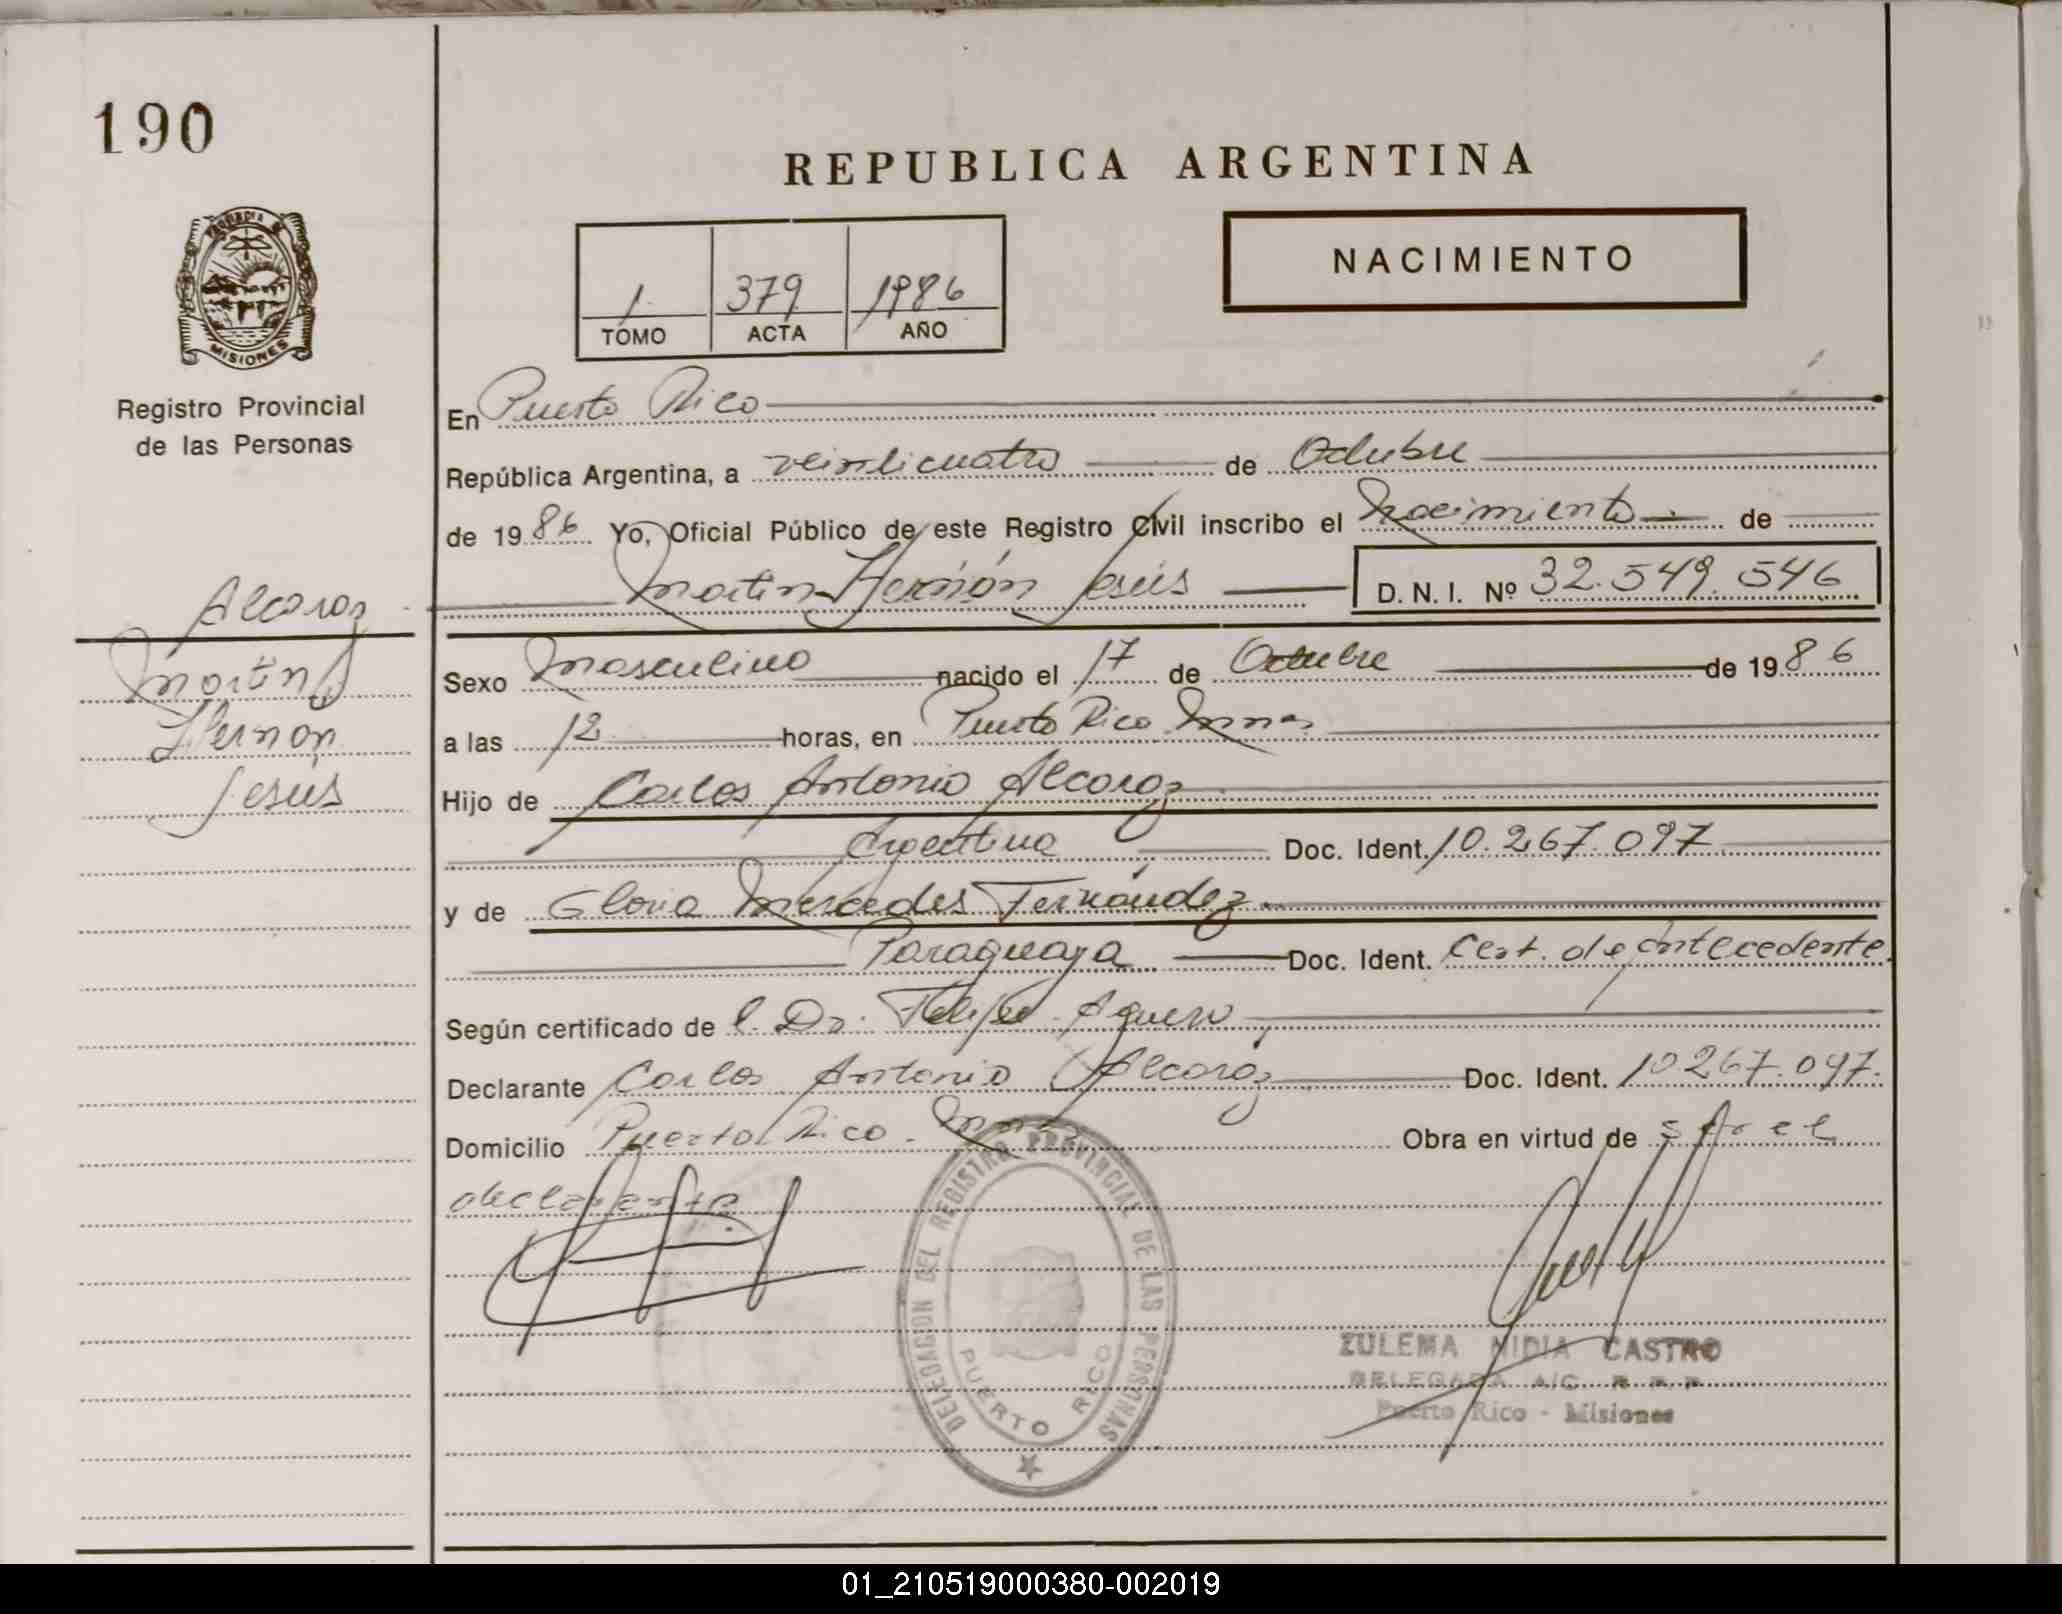 190
REPUBLICA ARGENTINA
NACIMIENTO
1 379 1986
TOMO ACTA AÑO
MISIONES
Registro Provincial
de las Personas
En Puerto Rico
República Argentina, a veinticuatro de Octubre
de 1986 Yo, Oficial Público de este Registro Civil inscribo el Nacimiento de
Martin Hernán Jesús D. N. I. Nº 32.549.546
Alcaraz
Martin
Hernán
Jesús
Sexo Masculino nacido el 17 de Octubre de 1986
a las 12 horas, en Puerto Rico Mnes
Hijo de Carlos Antonio Alcaraz
Argentina Doc. Ident. 10.267.097
y de Gloria Mercedes Fernández
Paraguaya Doc. Ident. Cert. de Antecedente
Según certificado de l. Dr. Felipe Aguero
Declarante Carlos Antonio Alcaráz Doc. Ident. 10267.097.
Domicilio Puerto Rico. Mnes Obra en virtud de ser el
declarante
DELEGACION DEL REGISTRO PROVINCIAL DE LAS PERSONAS
PUERTO RICO
ZULEMA NIDIA CASTRO
DELEGADA A/C. R.P.P.
Puerto Rico - Misiones
01_210519000380-002019